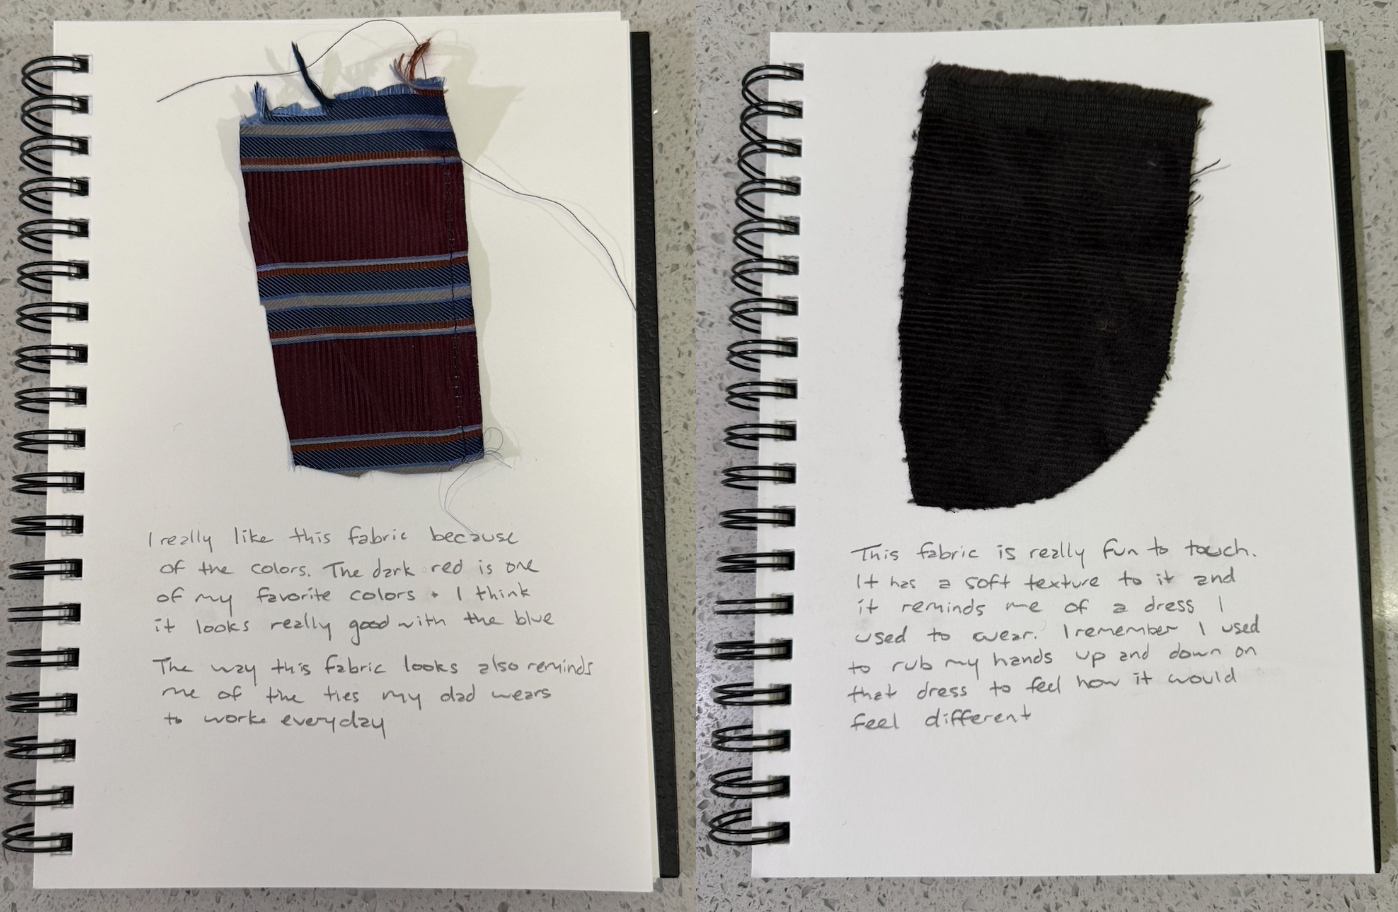 I really like this fabric because
of the colors. The dark red is one
of my favorite colors + I think
it looks really good with the blue
The way this fabric looks also reminds
me of the ties my dad wears
to work everyday
This fabric is really fun to touch.
It has a soft texture to it and
it reminds me of a dress I
used to wear. I remember I used
to rub my hands up and down on
that dress to feel how it would
feel different